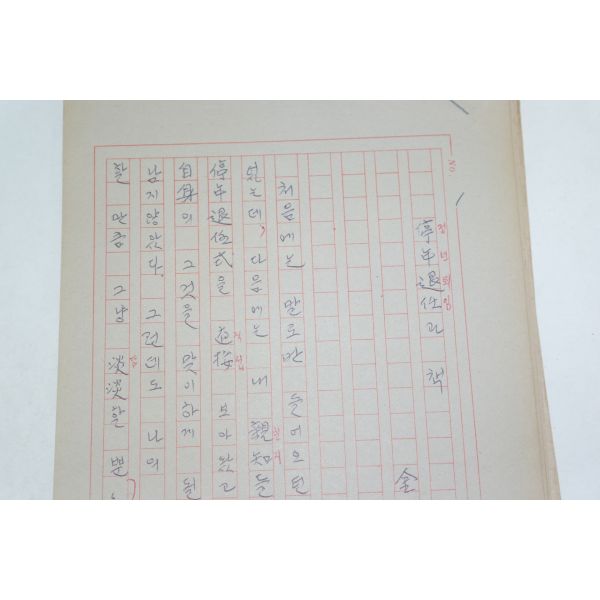 No.
停年退任과 책
정년퇴임
金
처음에는 말로만 들어오던
었는데, 다음에는 내 親知들
친지
停年退任式을 直接 보아왔고
직접
自身의 그것을 맞이하게 될
남지 않았다. 그런데도 나의
할 만큼 그냥 淡淡할 뿐